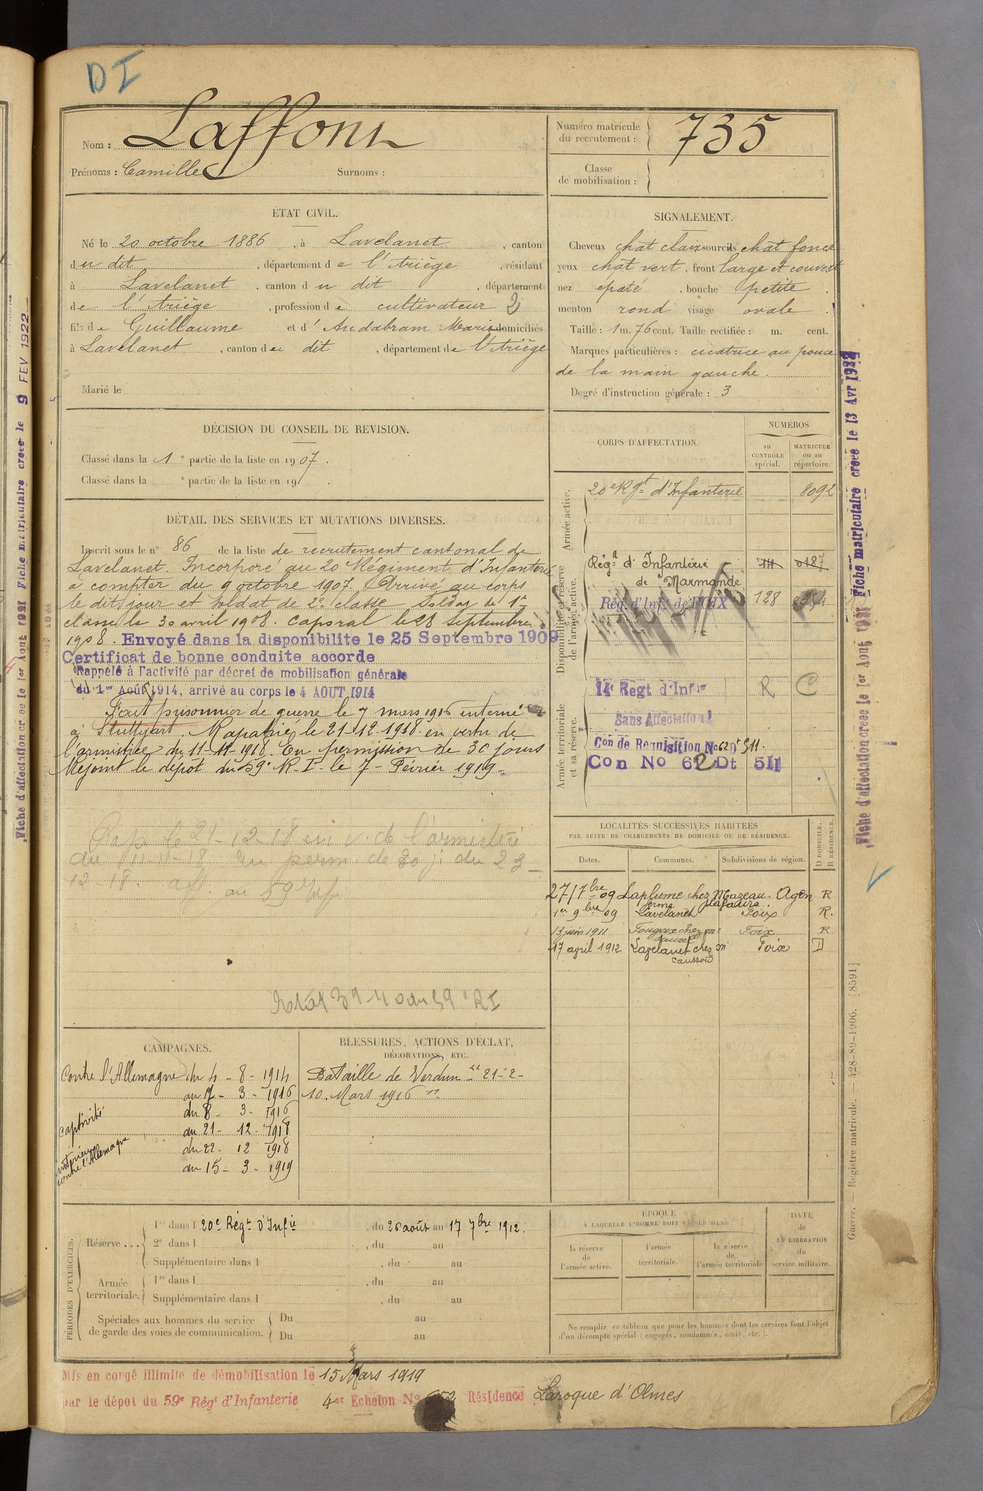 DI
Nom : Laffont
Prénoms : Camille Surnoms :
Numéro matricule du recrutement : 735
Classe de mobilisation :
ÉTAT CIVIL.
Né le 20 octobre 1886, à Lavelanet, canton
du dit, département de l'Ariège, résidant
à Lavelanet, canton du dit, département
de l'Ariège, profession de cultivateur
fils de Guillaume et d'Audabram Marie domiciliés
à Lavelanet, canton du dit, département de l'Ariège
Marié le
SIGNALEMENT.
Cheveux chât clair sourcils chât foncé
yeux chât vert, front large et couvert
nez épaté, bouche petite
menton rond visage ovale
Taille : 1 m. 76 cent. Taille rectifiée : m. cent.
Marques particulières : cicatrice au pouce
de la main gauche.
Degré d'instruction générale : 3
DÉCISION DU CONSEIL DE REVISION.
Classé dans la 1e partie de la liste en 1907.
Classé dans la e partie de la liste en 19
DÉTAIL DES SERVICES ET MUTATIONS DIVERSES.
Inscrit sous le n° 86 de la liste de recrutement cantonal de
Lavelanet. Incorporé au 20 Régiment d'Infanterie
à compter du 9 octobre 1907. Arrivé au corps
le dit jour et soldat de 2e classe. Soldat de 1re
classe le 30 avril 1908. Caporal le 28 Septembre
1908. Envoyé dans la disponibilite le 25 Septembre 1909
Certificat de bonne conduite accorde
Rappelé à l'activité par décret de mobilisation générale
du 1er Août 1914, arrivé au corps le 4 AOUT 1914
Fait prisonnier de guerre le 7 mars 1916 interné
à Stuttgart. Rapatrié le 21-12-1918 en vertu de
l'armistice du 11-11-1918. En permission de 30 jours
Rejoint le dépôt du 59e R.I. le 7 Février 1919.
Rap. le 21-12-18 en v. de l'armistice
du 11-11-18 En perm. de 30 j. du 23-
12-18. aff. au 59e
CORPS D'AFFECTATION.
NUMÉROS
AU CONTRÔLE spécial.
MATRICULE ou au répertoire.
Armée active.
20e Rgt d'Infanterie 8092
Disponibilité et réserve de l'armée active.
Régt d'Infanterie
de Marmande
Rég. d'Inf. de FOIX 128
Armée territoriale et sa réserve.
14e Regt d'Infie R C
Sans Affectation
Con de Requisition No 62 Dt 511.
Con No 62 Dt 511
LOCALITÉS SUCCESSIVES HABITÉES
PAR SUITE DE CHANGEMENTS DE DOMICILE OU DE RÉSIDENCE.
Dates. Communes. Subdivisions de région. D DOMICILE. R RÉSIDENCE.
27 7bre 09 Laplume chez Mazeau Agen R
1er 9bre 09 Lavelanet Foix R.
13 juin 1911 Fougax chez Mr Foix R
17 april 1912 Lavelanet chez Mr Foix D
CAMPAGNES.
Contre l'Allemagne du 4 - 8 - 1914
au 7 - 3 - 1916
captivité du 8 - 3 - 1916
au 21 - 12 - 1918
intérieur contre l'Allemagne du 22 - 12 1918
au 15 - 3 - 1919
BLESSURES, ACTIONS D'ÉCLAT,
DÉCORATIONS, ETC.
Bataille de Verdun "21-2-
10 Mars 1916"
PÉRIODES D'EXERCICES.
Réserve ... 1re dans l 20e Régt d'Infie, du 26 août au 17 7bre 1912.
2e dans l , du au
Supplémentaire dans l , du au
Armée territoriale. 1re dans l , du au
Supplémentaire dans l , du au
Spéciales aux hommes du service de garde des voies de communication. Du au
Du au
ÉPOQUE
À LAQUELLE L'HOMME DOIT PASSER DANS
la réserve de l'armée active.
l'armée territoriale.
la réserve de l'armée territoriale
DATE de LA LIBÉRATION du service militaire.
Ne remplir ce tableau que pour les hommes dont les services font l'objet
d'un décompte spécial (engagés, condamnés, omis, etc.).
Mis en congé illimité de démobilisation le 15 Mars 1919
par le dépot du 59e Régt d'Infanterie 4er Echelon No Résidence Laroque d'Olmes
Fiche d'affectation créée le 1er Août 1921 Fiche matriculaire creee le 9 FEV 1922
Fiche d'affectation creee le 1er Aout 1921 Fiche matriculaire creee le 13 Avr 1922
Guerre. — Registre matricule. — 428-89-1906. [8591]